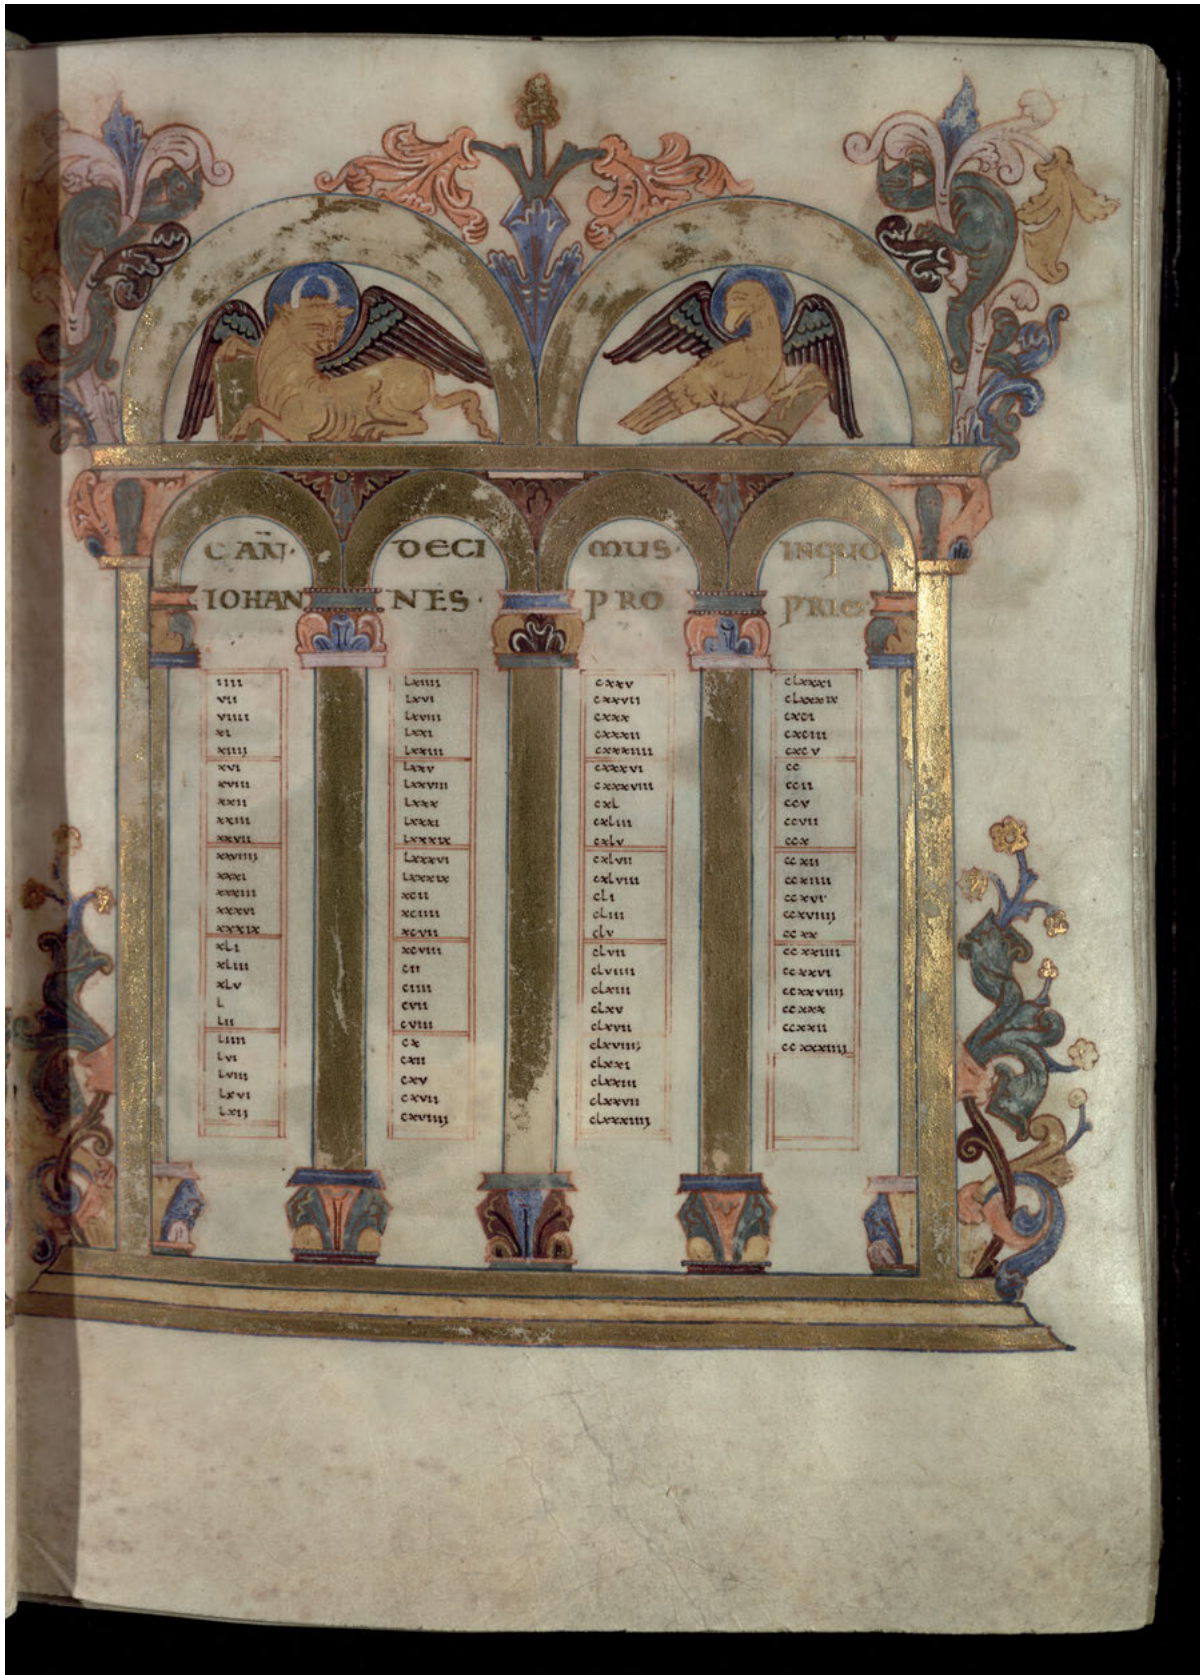 CAN̄· DECI MUS· INQUO
IOHAN NES· PRO PRIE·
iiii
vii
viiii
xi
xiiii
xvi
xviii
xxii
xxiiii
xxvii
xxviiij
xxxi
xxxiii
xxxvi
xxxix
xLi
xLiii
xLv
L
Lii
Liiii
Lvi
Lviii
Lxvi
Lxij
Lxiiii
Lxvi
Lxviii
Lxxi
Lxxiii
Lxxv
Lxxviii
Lxxx
Lxxxi
Lxxxix
Lxxxvi
Lxxxix
xcii
xciiii
xcvii
xcviii
cii
ciiii
cvii
cviii
cx
cxii
cxv
cxvii
cxviiij
cxxv
cxxvii
cxxx
cxxxii
cxxxiiii
cxxxvi
cxxxviii
cxL
cxLiii
cxLv
cxLvii
cxLviii
cLi
cLiii
cLv
cLvii
cLviiii
cLxiii
cLxv
cLxvii
cLxviiij
cLxxi
cLxxiii
cLxxvii
cLxxxiiij
cLxxxi
cLxxxix
cxci
cxciii
cxcv
cc
ccii
ccv
ccvii
ccx
ccxii
ccxiiii
ccxvi
ccxviiij
ccxx
ccxxiiii
ccxxvi
ccxxviiij
ccxxx
ccxxii
ccxxxiiij